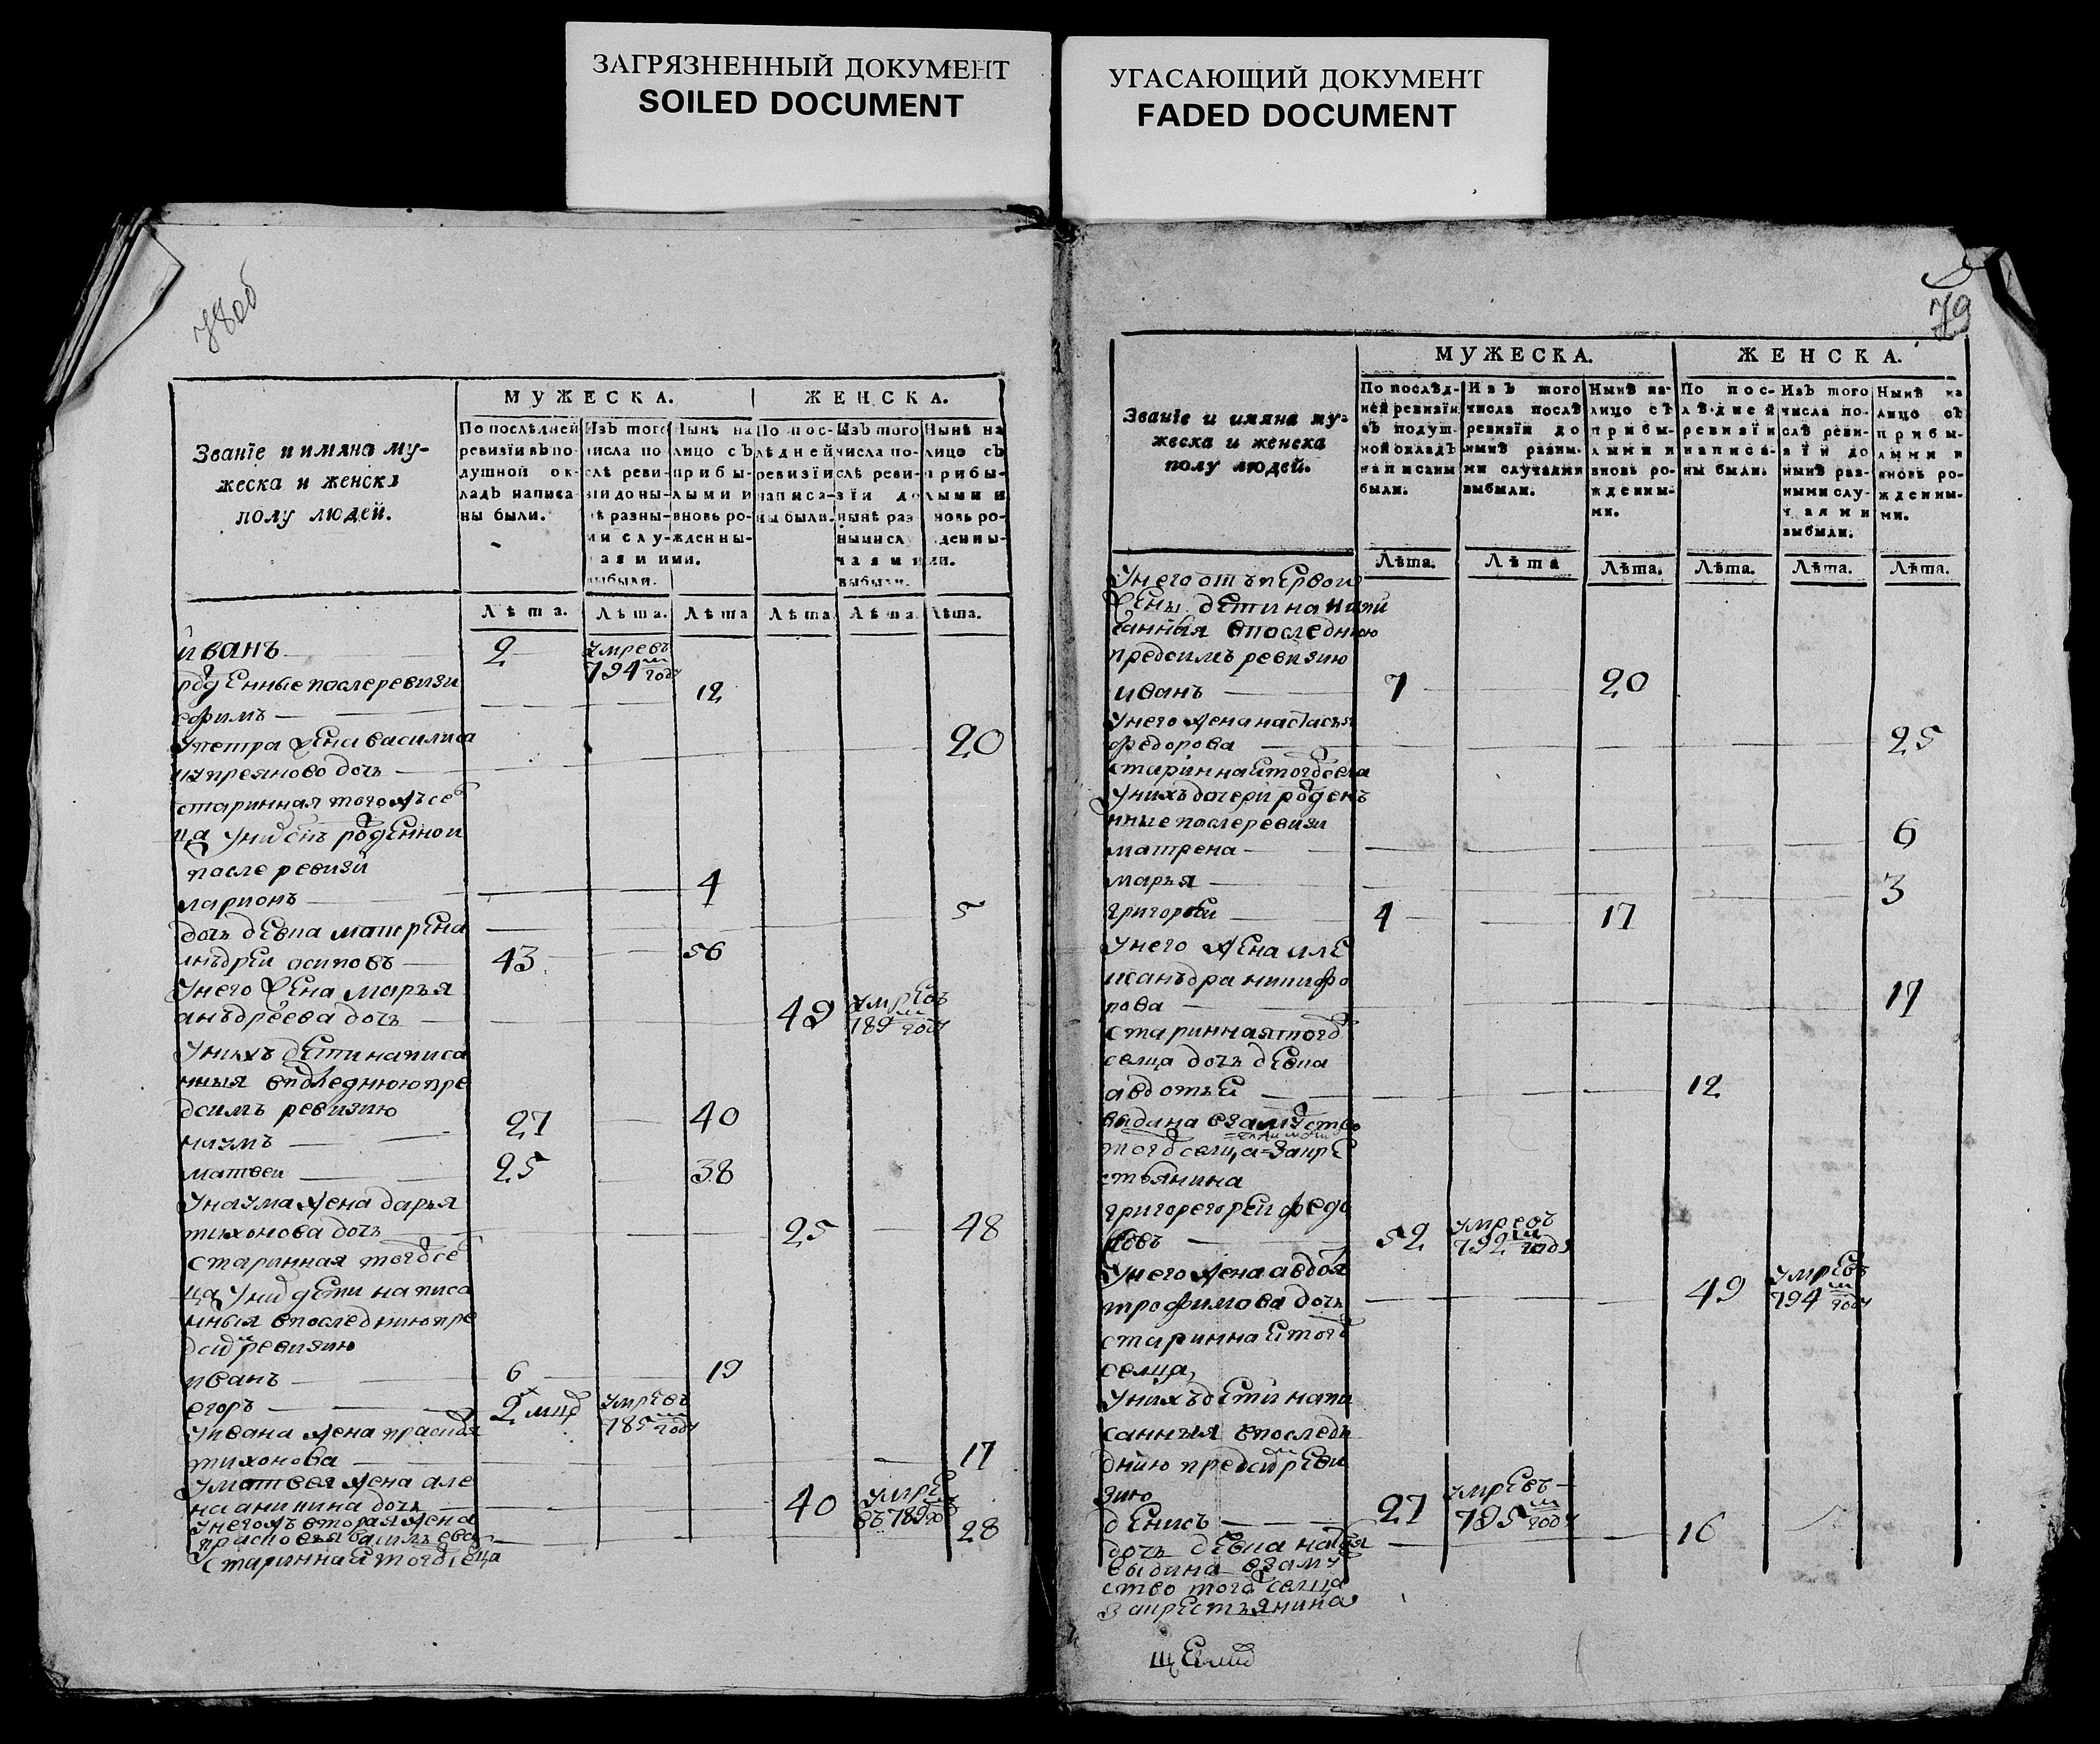 ЗАГРЯЗНЕННЫЙ ДОКУМЕНТ
SOILED DOCUMENT
УГАСАЮЩИЙ ДОКУМЕНТ
FADED DOCUMENT
78об
МУЖЕСКА. ЖЕНСКА.
Званїе и имяна му-
жеска и женска
полу людей.
По послѣдней
ревизїи въ по-
душной ок-
ладъ написа-
ны были.
Изъ того
числа по
слѣ реви-
зїи до ны-
нѣ разны-
ми слу-
чаями
выбыли.
Нынѣ на
лицо съ
прибы-
лыми и
вновь ро-
жденны-
ми.
По пос-
лѣдней
ревизїи
написа-
ны были.
Изъ того
числа по-
слѣ реви-
зїи до
нынѣ раз
ными сл
чаями
выбыли.
Нынѣ на
лицо съ
прибы-
лыми и
вновь ро-
жденны-
ми.
Лѣта. Лѣта. Лѣта Лѣта Лѣта Лѣта.
иванъ 2 умре въ
794м году
рожденные после ревизи
ефимъ 12
у петра жена василиса
купреянова дочь 20
старинная того жъ се
ца у них снъ рожденной
после ревизи
ларионъ 4
дочь девка матрена 5
андреи осиповъ 43 56
у него жена марья
анъдреева дочь 49 умре въ
789м году
у нихъ дети написа
ныя в последнюю пре
дсимъ ревизию
наумъ 27 40
матвеи 25 38
у наума жена дарья
тихонова дочь 25 48
старинная того се
ца у них дети написа
ныя в последнию пре
дсим ревизию
иванъ 6 19
егоръ 2х мнц умре въ
785м году
у ивана жена праскdя
тихонова 17
у матвея жена але
на аникина дочь 40 умре
въ 789 го
у него жъ вторая жена
прасковья васильева 28
старинная того сеца
79
МУЖЕСКА. ЖЕНСКА.
Званїе и имяна му-
жеска и женска
полу людей.
По послѣд-
ней ревизїи
въ подуш-
ной окладъ
написаны
были.
Изъ того
числа послѣ
ревизїи до
нынѣ разны-
ми случаями
выбыли.
Нынѣ на-
лицо съ
прибы-
лыми и
вновь ро-
жденны-
ми.
По пос-
лѣдней
ревизїи
написа-
ны были.
Изъ того
числа по-
слѣ реви-
зїи до
нынѣ раз-
ными слу-
чаями
выбыли.
Нынѣ на
лицо съ
прибы-
лыми и
вновь ро-
жденны-
ми.
Лѣта. Лѣта Лѣта. Лѣта. Лѣта. Лѣта.
у него отъ первой
жены дети напи
санныя в последнюю
предсимъ ревизию
иванъ 7 20
у него жена настасья
федорова 25
стариннай того села
у нихъ дочери рожденъ
нные после ревизи
матрена 6
марья 3
григореи 4 17
у него жена але
ксанъдра никифо
рова 17
старинная того
селца дочь девка
авдотья 12
выдана в замуство
того селца за кре
стьянина
григорей федо
ровъ 52 умре въ
792м году
у него жена авдотя
трофимова дочь 49 умре въ
794м году
стариннай того
селца,
у нихъ дети напи
санныя в последн
днию предсим реви
зию
денисъ 27 умре въ
795м году
дочь девка 16
выдана в заму
ство того селца
за крестьянина